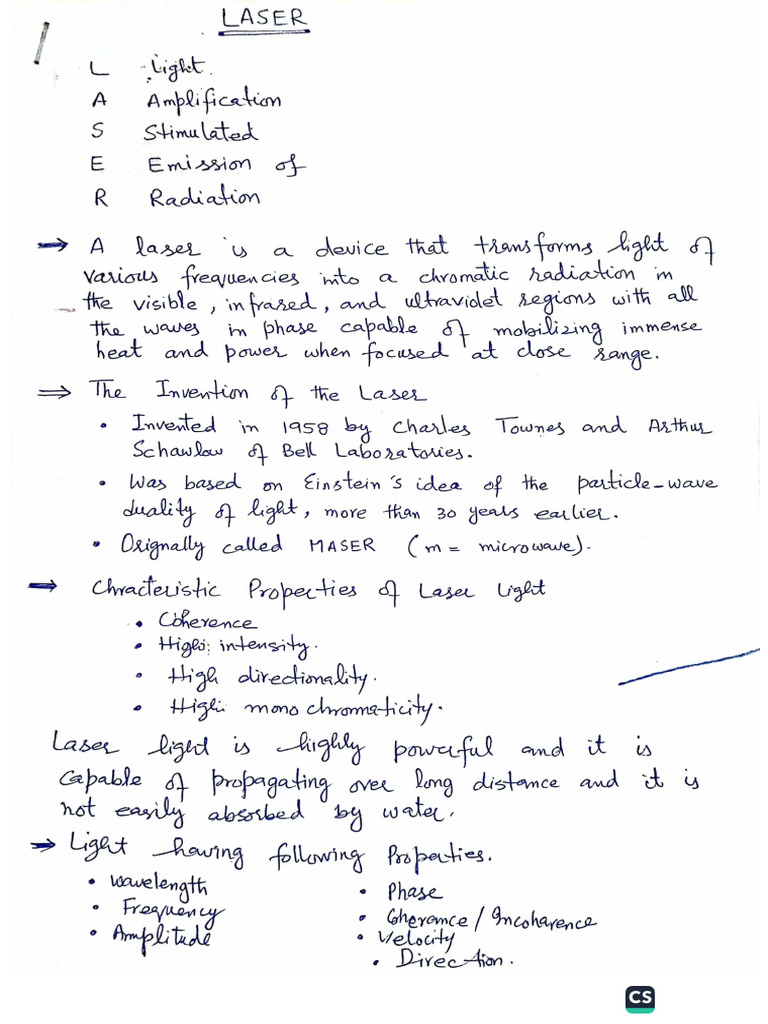 LASER
L Light.
A Amplification
S Stimulated
E Emission of
R Radiation
→ A laser is a device that transforms light of
various frequencies into a chromatic radiation in
the visible, infrared, and ultraviolet regions with all
the waves in phase capable of mobilizing immense
heat and power when focused at close range.
⇒ The Invention of the Laser
• Invented in 1958 by Charles Townes and Arthur
Schawlow of Bell Laboratories.
• Was based on Einstein's idea of the particle-wave
duality of light, more than 30 years earlier.
• Orignally called MASER (m = microwave).
⇒ Chracteristic Properties of Laser Light
• Coherence
• High intensity.
• High directionality.
• High mono chromaticity.
Laser light is highly powerful and it is
capable of propagating over long distance and it is
not easily absorbed by water.
→ Light having following Properties.
• Wavelength
• Frequency
• Amplitude
• Phase
• Coherance / Incoharence
• Velocity
• Direction.
CS